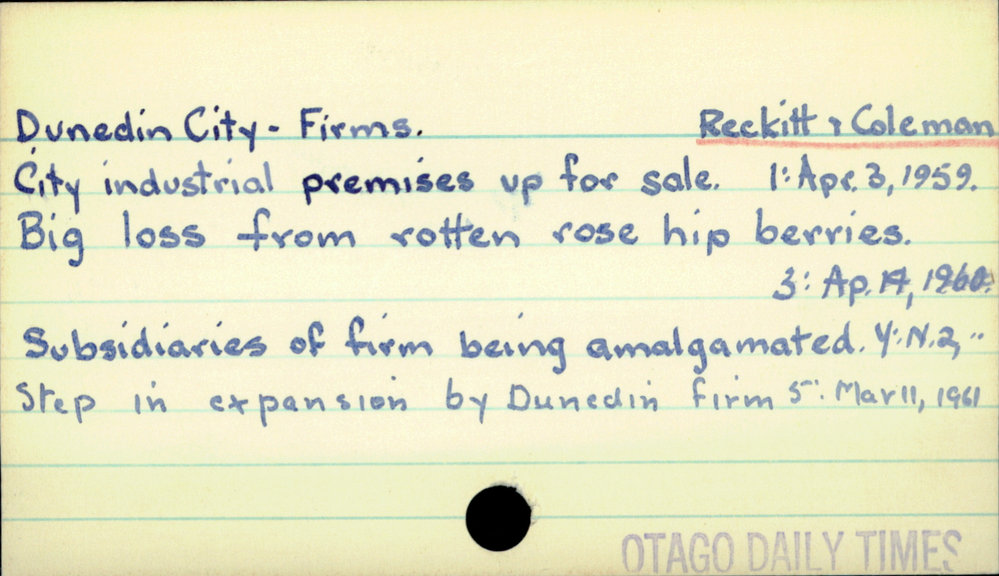 Dunedin City - Firms. Reckitt & Coleman
City industrial premises up for sale. 1: Apr. 3, 1959.
Big loss from rotten rose hip berries.
3: Ap. 14, 1960.
Subsidiaries of firm being amalgamated. 4: N. 2, "
Step in expansion by Dunedin firm 5: Mar 11, 1961
OTAGO DAILY TIMES